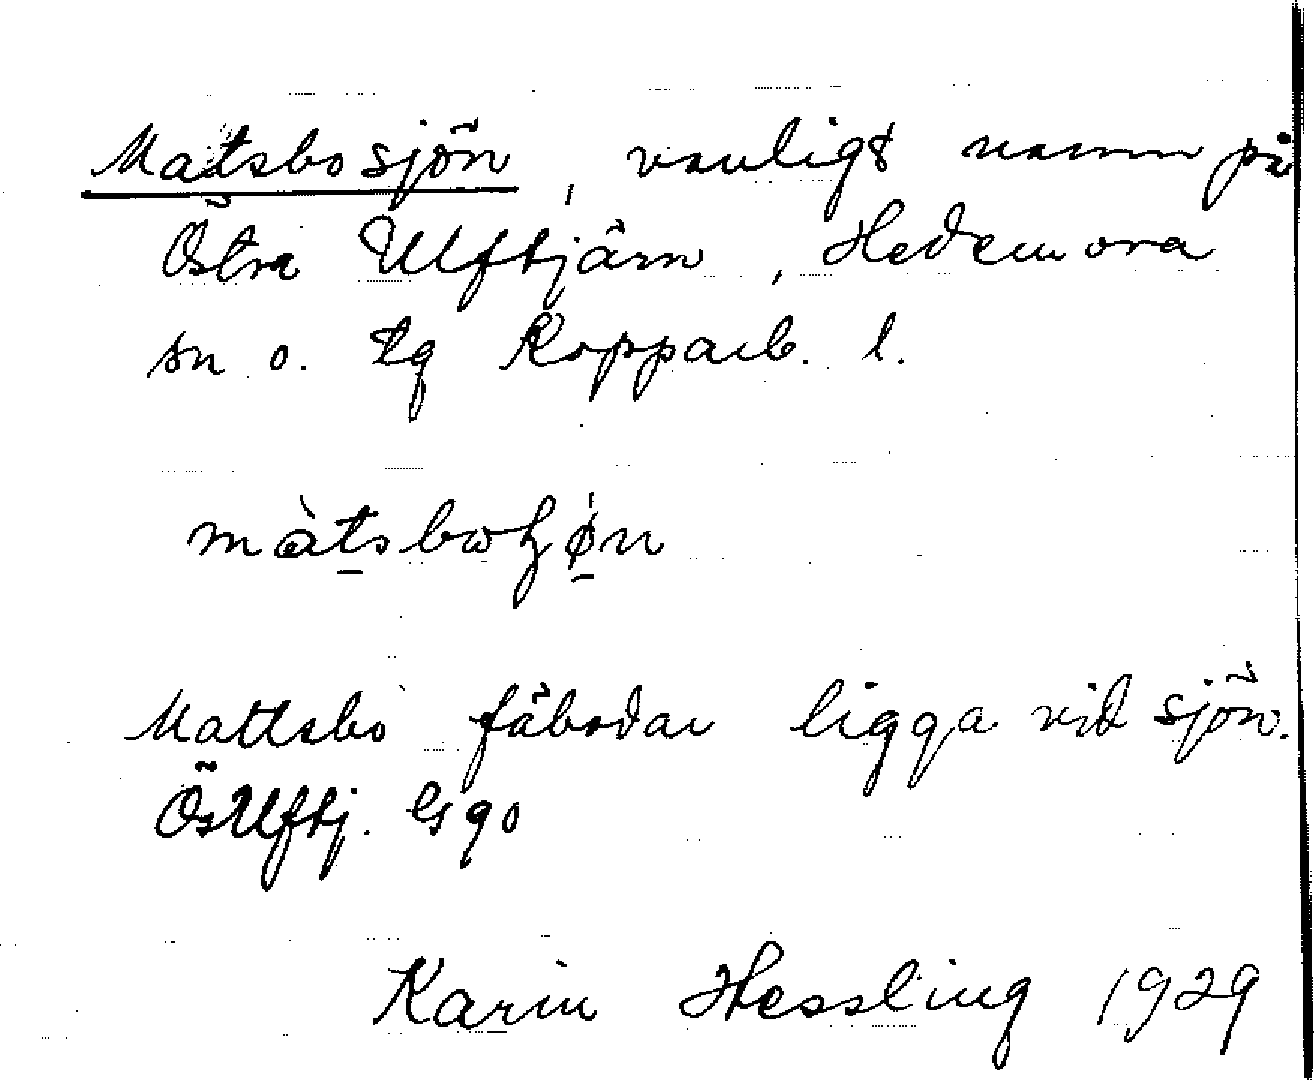 Matsbosjön, vanligt namn på
Östra Ulftjärn, Hedemora
sn o. tg Kopparb. l.
màtsbωɧø̀n
Mattsbo fäbodar ligga vid sjön.
Ö Ulftj. G 90
Karin Hessling 1929